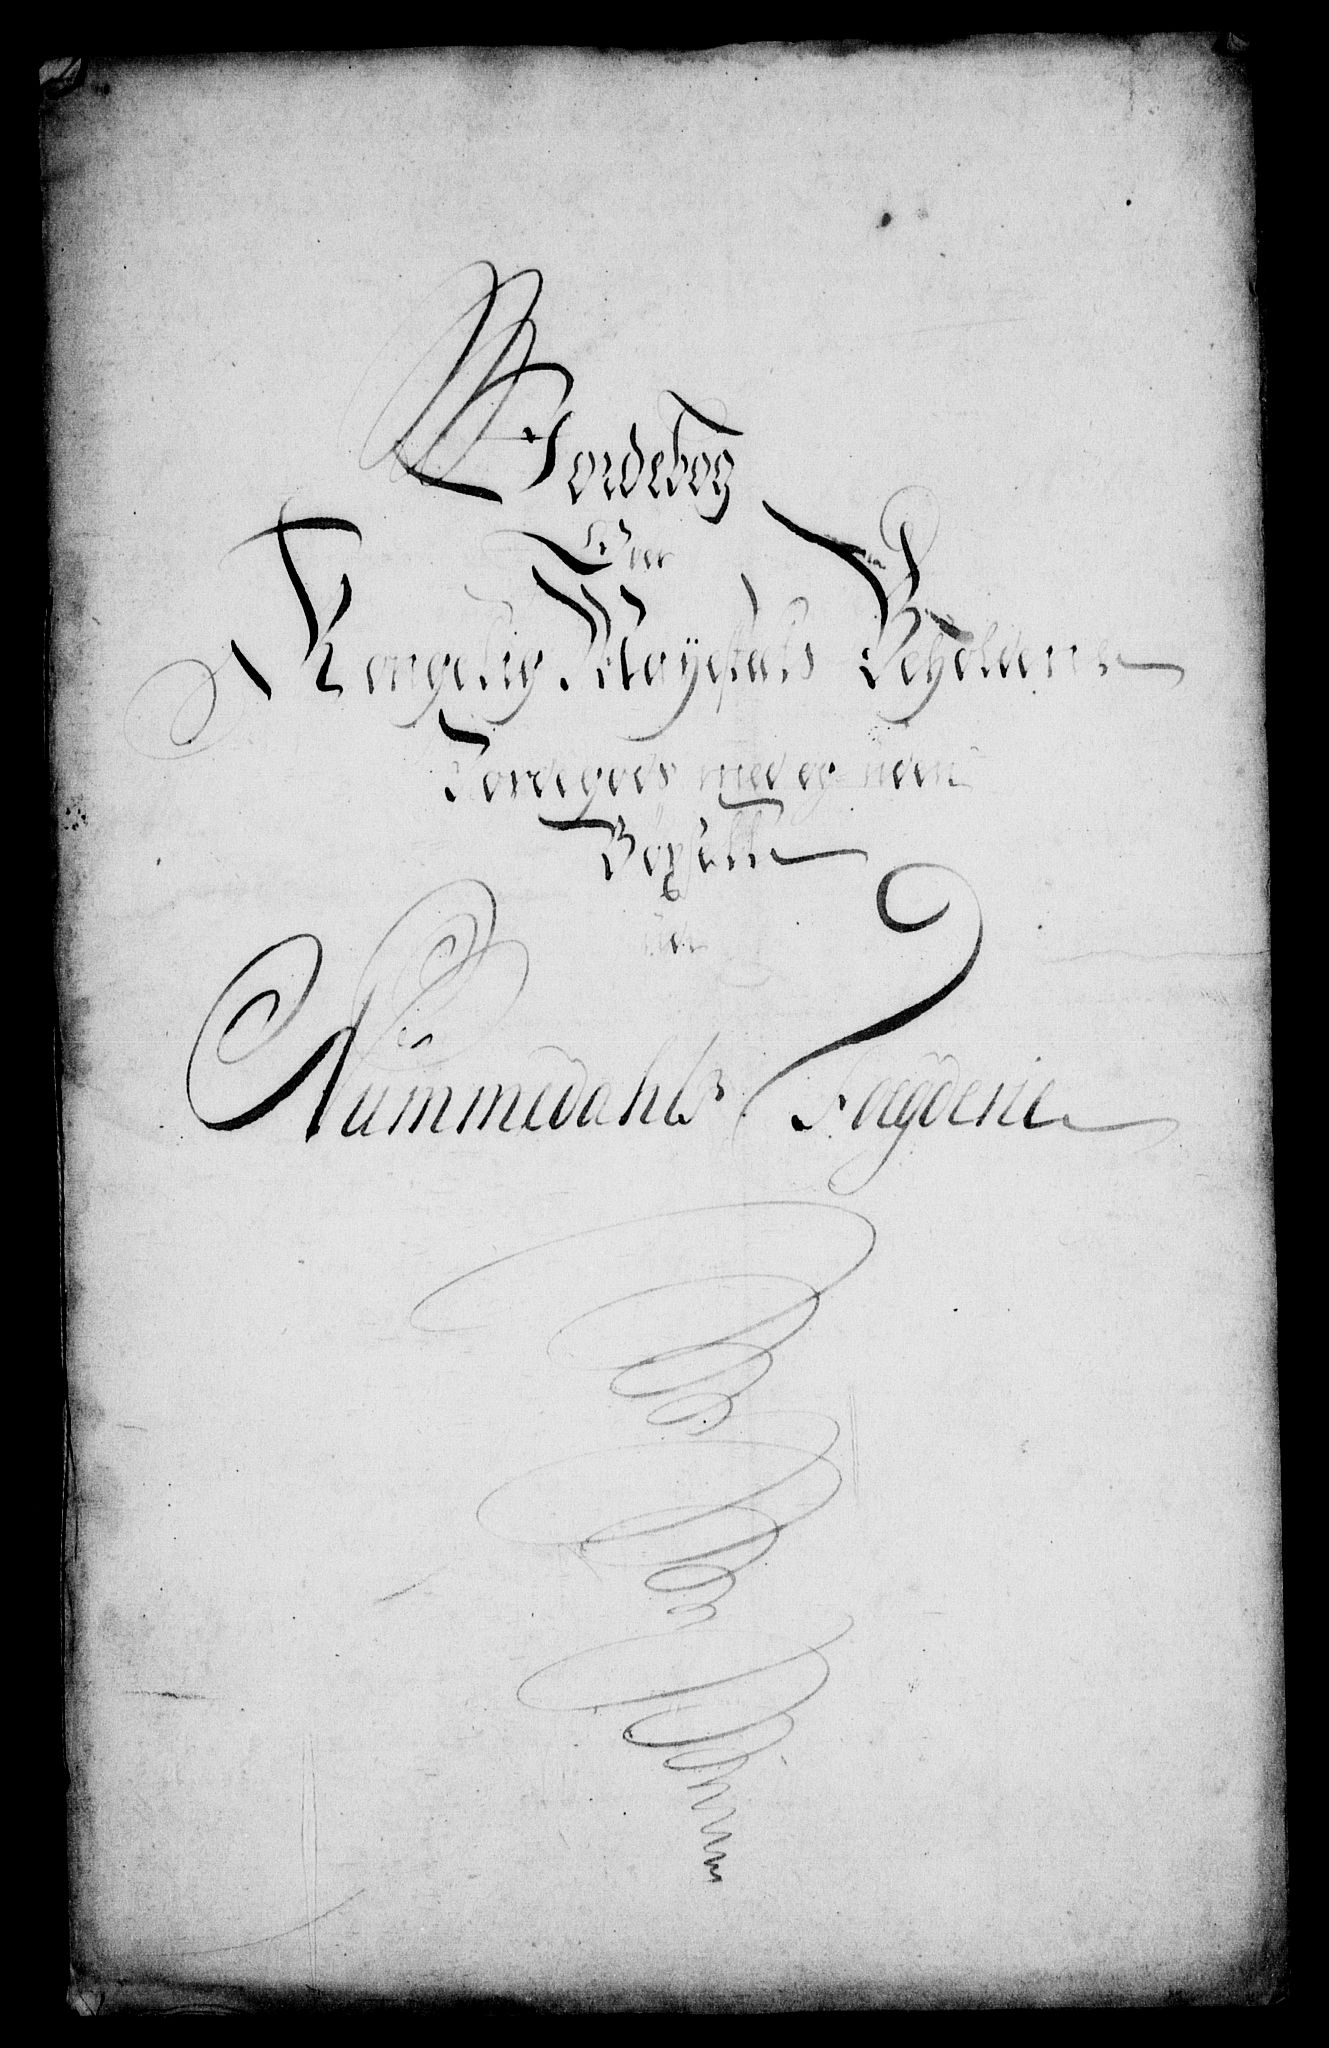 Jordebog
Over
Kongelig Mayestets Beholdene
Jordegods med og uden
Böxsell
udi
Nummedahls Foegderie